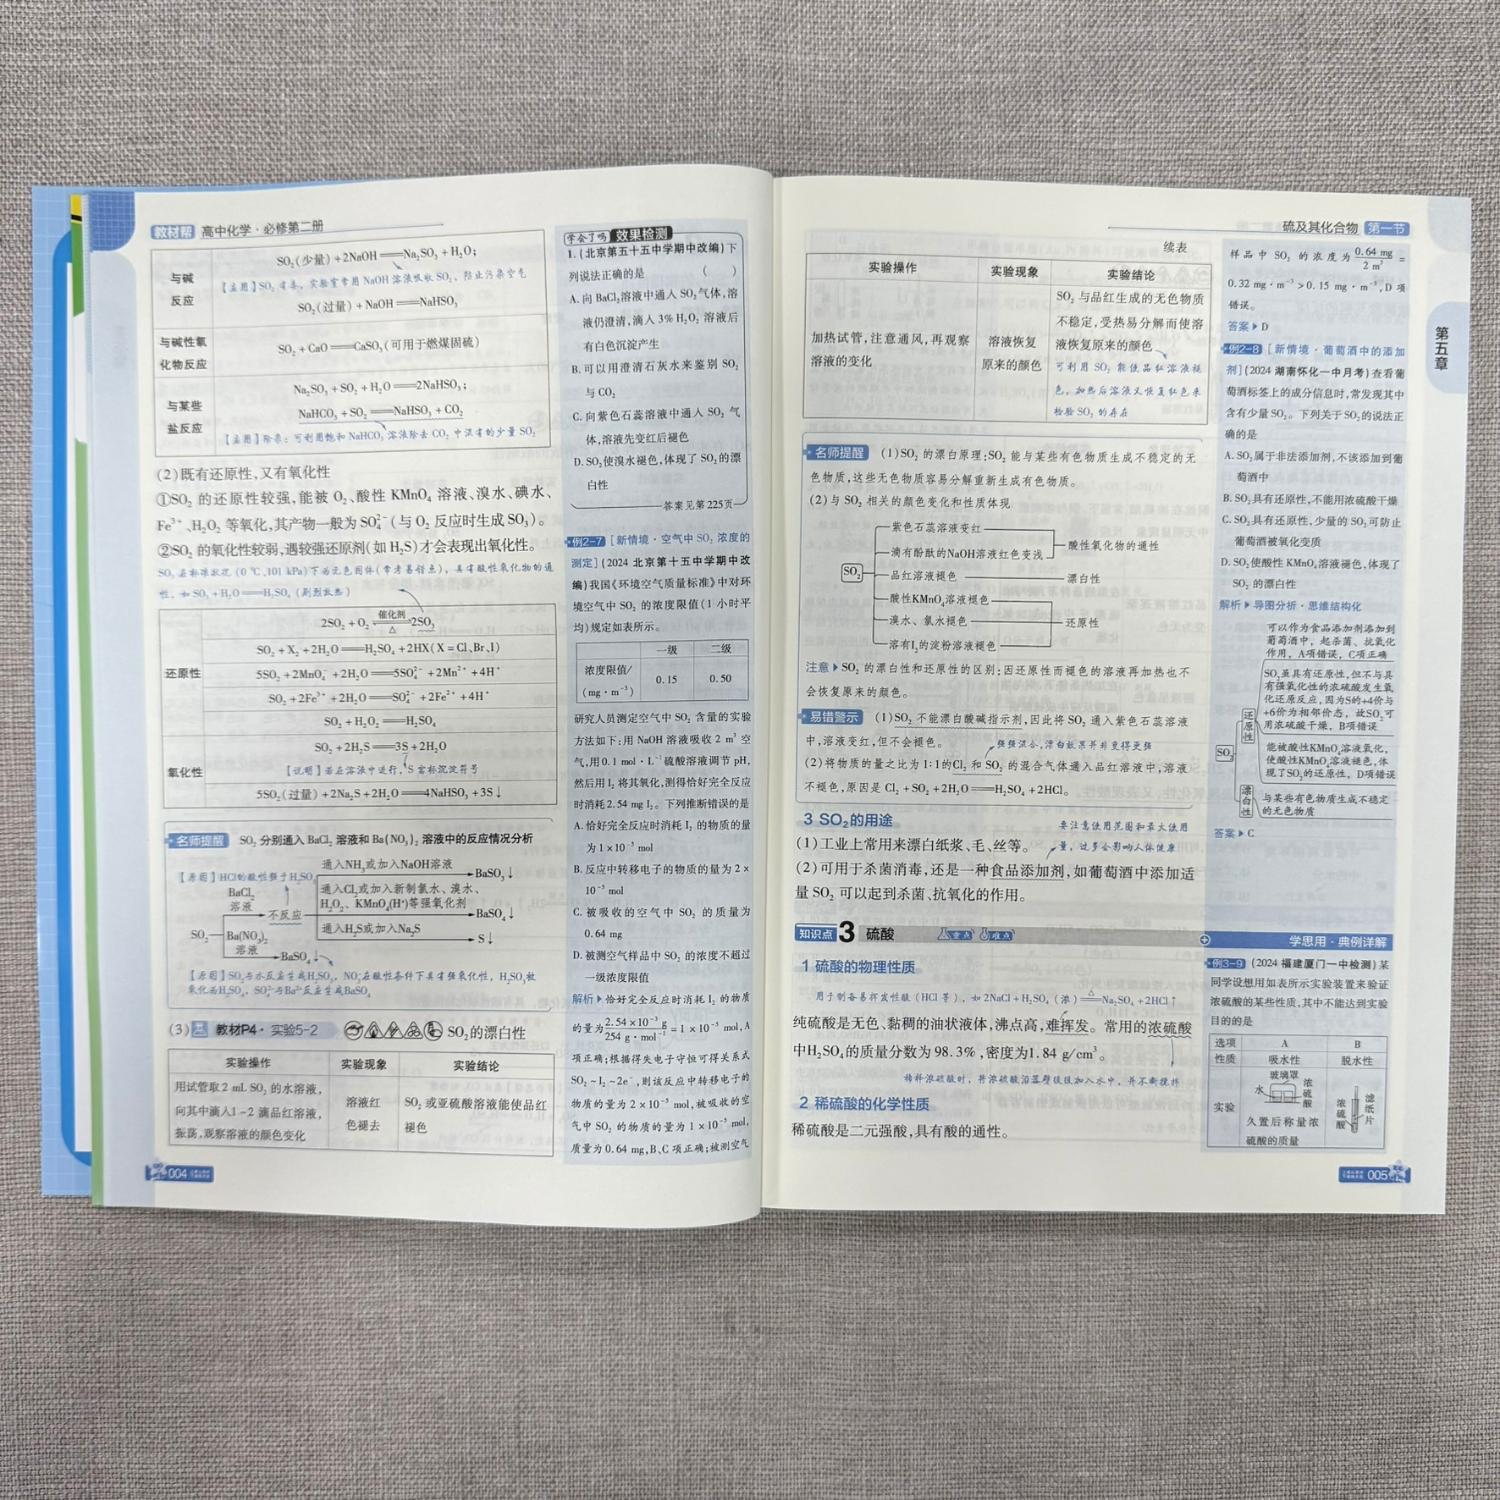 教材帮 高中化学·必修第二册
与碱
反应
SO₂(少量)+2NaOH══Na₂SO₃+H₂O;
【应用】SO₂有毒,实验室常用NaOH溶液吸收SO₂,防止污染空气
SO₂(过量)+NaOH══NaHSO₃
与碱性氧
化物反应
SO₂+CaO══CaSO₃(可用于燃煤固硫)
与某些
盐反应
Na₂SO₃+SO₂+H₂O══2NaHSO₃;
NaHCO₃+SO₂══NaHSO₃+CO₂
【应用】除杂:可利用饱和NaHCO₃溶液除去CO₂中混有的少量SO₂
(2)既有还原性,又有氧化性
①SO₂的还原性较强,能被O₂、酸性KMnO₄溶液、溴水、碘水、
Fe³⁺、H₂O₂等氧化,其产物一般为SO₄²⁻(与O₂反应时生成SO₃)。
②SO₂的氧化性较弱,遇较强还原剂(如H₂S)才会表现出氧化性。
SO₃在标准状况(0℃、101 kPa)下为无色固体(常考易错点),具有酸性氧化物的通
性,如SO₃+H₂O══H₂SO₄(剧烈放热)
还原性
2SO₂+O₂ 催化剂 △ 2SO₃
SO₂+X₂+2H₂O══H₂SO₄+2HX(X=Cl、Br、I)
5SO₂+2MnO₄⁻+2H₂O══5SO₄²⁻+2Mn²⁺+4H⁺
SO₂+2Fe³⁺+2H₂O══SO₄²⁻+2Fe²⁺+4H⁺
SO₂+H₂O₂══H₂SO₄
氧化性
SO₂+2H₂S══3S+2H₂O
【说明】若在溶液中进行,S需标沉淀符号
5SO₂(过量)+2Na₂S+2H₂O══4NaHSO₃+3S↓
名师提醒 SO₂分别通入BaCl₂溶液和Ba(NO₃)₂溶液中的反应情况分析
【原因】HCl的酸性强于H₂SO₃
通入NH₃或加入NaOH溶液
BaSO₃↓
BaCl₂
溶液
不反应
通入Cl₂或加入新制氯水、溴水、
H₂O₂、KMnO₄(H⁺)等强氧化剂
BaSO₄↓
通入H₂S或加入Na₂S
S↓
SO₂
Ba(NO₃)₂
溶液
BaSO₄↓
【原因】SO₂与水反应生成H₂SO₃,NO₃⁻在酸性条件下具有强氧化性,H₂SO₃被
氧化为H₂SO₄,SO₄²⁻与Ba²⁺反应生成BaSO₄
(3) 教材P4·实验5-2 SO₂的漂白性
实验操作 实验现象 实验结论
用试管取2 mL SO₂的水溶液,
向其中滴入1~2滴品红溶液,
振荡,观察溶液的颜色变化
溶液红
色褪去
SO₂或亚硫酸溶液能使品红
褪色
004
学会了吗 效果检测
1.(北京第五十五中学期中改编)下
列说法正确的是 ( )
A.向BaCl₂溶液中通入SO₂气体,溶
液仍澄清,滴入3% H₂O₂溶液后
有白色沉淀产生
B.可以用澄清石灰水来鉴别SO₂
与CO₂
C.向紫色石蕊溶液中通入SO₂气
体,溶液先变红后褪色
D.SO₂使溴水褪色,体现了SO₂的漂
白性
答案见第225页
例2-7 [新情境·空气中SO₂浓度的
测定](2024北京第十五中学期中改
编)我国《环境空气质量标准》中对环
境空气中SO₂的浓度限值(1小时平
均)规定如表所示。
一级 二级
浓度限值/
(mg·m⁻³)
0.15 0.50
研究人员测定空气中SO₂含量的实验
方法如下:用NaOH溶液吸收2 m³空
气,用0.1 mol·L⁻¹硫酸溶液调节pH,
然后用I₂将其氧化,测得恰好完全反应
时消耗2.54 mg I₂。下列推断错误的是
A.恰好完全反应时消耗I₂的物质的量
为1×10⁻⁵ mol
B.反应中转移电子的物质的量为2×
10⁻⁵ mol
C.被吸收的空气中SO₂的质量为
0.64 mg
D.被测空气样品中SO₂的浓度不超过
一级浓度限值
解析▶恰好完全反应时消耗I₂的物质
的量为2.54×10⁻³ g/254 g·mol⁻¹=1×10⁻⁵ mol,A
项正确;根据得失电子守恒可得关系式
SO₂~I₂~2e⁻,则该反应中转移电子的
物质的量为2×10⁻⁵ mol,被吸收的空
气中SO₂的物质的量为1×10⁻⁵ mol,
质量为0.64 mg,B、C项正确;被测空气
硫及其化合物 第一节
续表
实验操作 实验现象 实验结论
加热试管,注意通风,再观察
溶液的变化
溶液恢复
原来的颜色
SO₂与品红生成的无色物质
不稳定,受热易分解而使溶
液恢复原来的颜色
可利用SO₂能使品红溶液褪
色,加热后溶液又恢复红色来
检验SO₂的存在
名师提醒 (1)SO₂的漂白原理:SO₂能与某些有色物质生成不稳定的无
色物质,这些无色物质容易分解重新生成有色物质。
(2)与SO₂相关的颜色变化和性质体现
SO₂
紫色石蕊溶液变红
滴有酚酞的NaOH溶液红色变浅
酸性氧化物的通性
品红溶液褪色
漂白性
酸性KMnO₄溶液褪色
溴水、氯水褪色
溶有I₂的淀粉溶液褪色
还原性
注意▶SO₂的漂白性和还原性的区别:因还原性而褪色的溶液再加热也不
会恢复原来的颜色。
易错警示 (1)SO₂不能漂白酸碱指示剂,因此将SO₂通入紫色石蕊溶液
中,溶液变红,但不会褪色。
强强混合,漂白效果并非变得更强
(2)将物质的量之比为1:1的Cl₂和SO₂的混合气体通入品红溶液中,溶液
不褪色,原因是Cl₂+SO₂+2H₂O══H₂SO₄+2HCl。
3 SO₂的用途
要注意使用范围和最大使用
量,过多会影响人体健康
(1)工业上常用来漂白纸浆、毛、丝等。
(2)可用于杀菌消毒,还是一种食品添加剂,如葡萄酒中添加适
量SO₂可以起到杀菌、抗氧化的作用。
知识点3 硫酸 重点 难点
1 硫酸的物理性质
用于制备易挥发性酸(HCl等),如2NaCl+H₂SO₄(浓)══△Na₂SO₄+2HCl↑
纯硫酸是无色、黏稠的油状液体,沸点高,难挥发。常用的浓硫酸
中H₂SO₄的质量分数为98.3%,密度为1.84 g/cm³。
稀释浓硫酸时,将浓硫酸沿器壁缓缓加入水中,并不断搅拌
2 稀硫酸的化学性质
稀硫酸是二元强酸,具有酸的通性。
样品中SO₂的浓度为0.64 mg/2 m³=
0.32 mg·m⁻³>0.15 mg·m⁻³,D项
错误。
答案▶D
例2-8 [新情境·葡萄酒中的添加
剂](2024湖南怀化一中月考)查看葡
萄酒标签上的成分信息时,常发现其中
含有少量SO₂。下列关于SO₂的说法正
确的是
A.SO₂属于非法添加剂,不该添加到葡
萄酒中
B.SO₂具有还原性,不能用浓硫酸干燥
C.SO₂具有还原性,少量的SO₂可防止
葡萄酒被氧化变质
D.SO₂使酸性KMnO₄溶液褪色,体现了
SO₂的漂白性
解析▶导图分析·思维结构化
可以作为食品添加剂添加到
葡萄酒中,起杀菌、抗氧化
作用,A项错误,C项正确
SO₂虽具有还原性,但不与具
有强氧化性的浓硫酸发生氧
化还原反应,因为S的+4价与
+6价为相邻价态,故SO₂可
用浓硫酸干燥,B项错误
还原性
SO₂
能被酸性KMnO₄溶液氧化,
使酸性KMnO₄溶液褪色,体
现了SO₂的还原性,D项错误
漂白性
与某些有色物质生成不稳定
的无色物质
答案▶C
学思用·典例详解
例3-9 (2024福建厦门一中检测)某
同学设想用如表所示实验装置来验证
浓硫酸的某些性质,其中不能达到实验
目的的是
选项 A B
性质 吸水性 脱水性
实验
玻璃罩
水
浓硫酸
久置后称量浓
硫酸的质量
浓硫酸
滤纸片
005
第五章